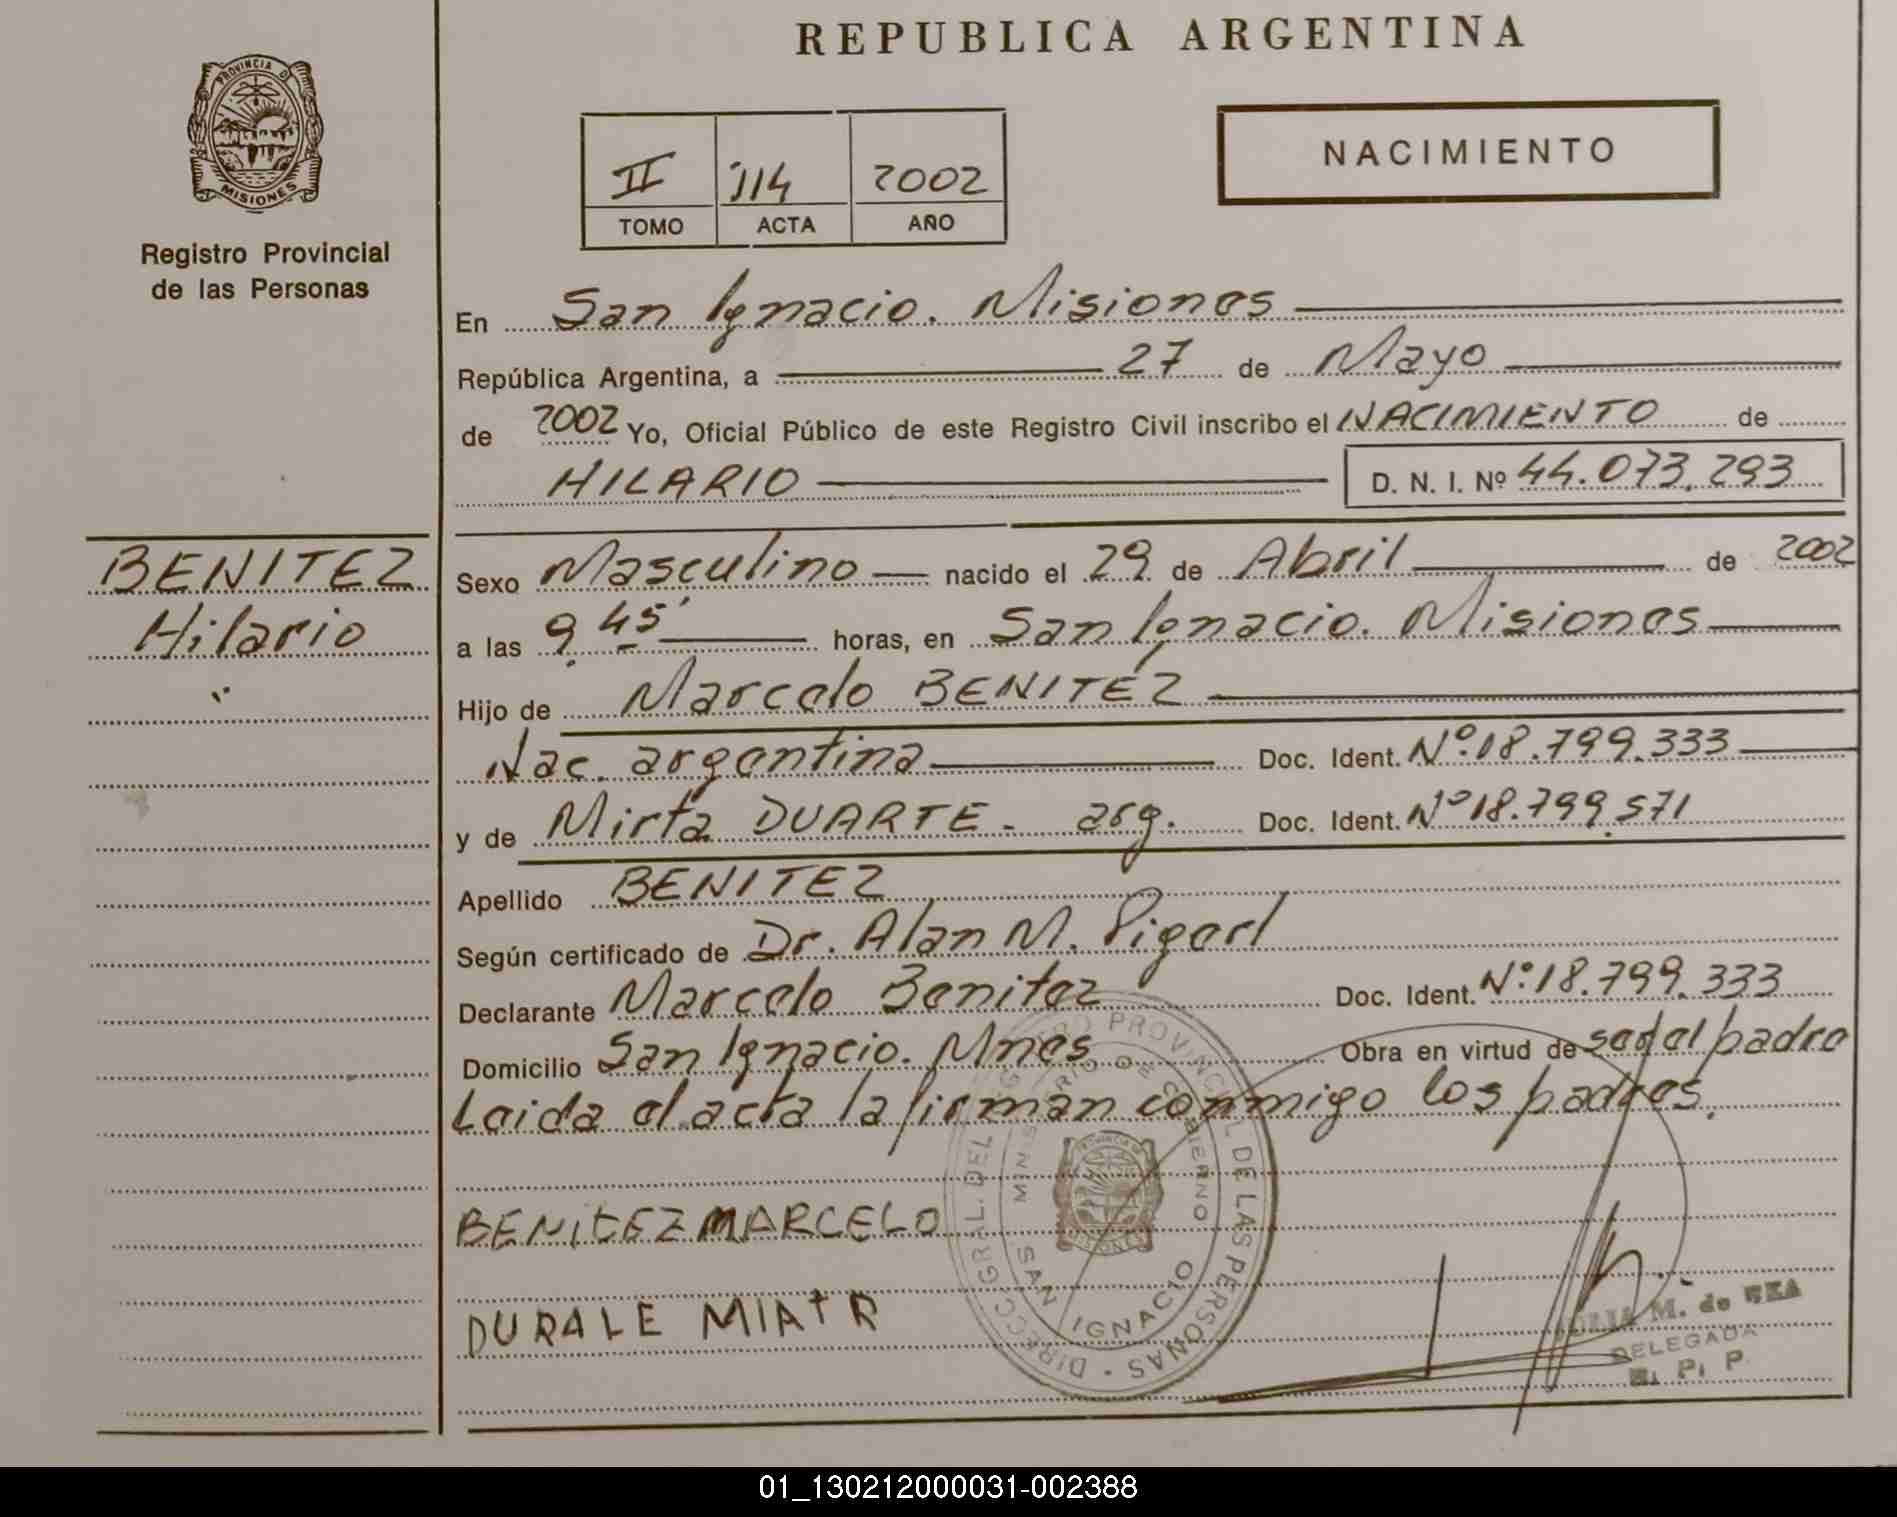 REPUBLICA ARGENTINA
PROVINCIA D
MISIONES
Registro Provincial
de las Personas
II 114 2002
TOMO ACTA AÑO
NACIMIENTO
En San Ignacio. Misiones
República Argentina, a 27 de Mayo
de 2002 Yo, Oficial Público de este Registro Civil inscribo el NACIMIENTO de
HILARIO D. N. I. Nº 44.073.293
BENITEZ
Hilario
Sexo Masculino nacido el 29 de Abril de 2002
a las 9.45' horas, en San Ignacio. Misiones
Hijo de Marcelo BENITEZ
Nac. argentina Doc. Ident. Nº 18.799.333
y de Mirta DUARTE - arg. Doc. Ident. Nº 18.799.571
Apellido BENITEZ
Según certificado de Dr. Alan M.
Declarante Marcelo Benitez Doc. Ident. Nº 18.799.333
Domicilio San Ignacio. Mnes Obra en virtud de ser el padre
Leida el acta la firman conmigo los padres.
BENITEZ MARCELO
DURALE MIATR
DIRACC. GRAL. DEL REGISTRO PROVINCIAL DE LAS PERSONAS
MINISTERIO DE GOBIERNO
PROVINCIA D
MISIONES
SAN IGNACIO
M. de
DELEGADA
R. P. P.
01_130212000031-002388